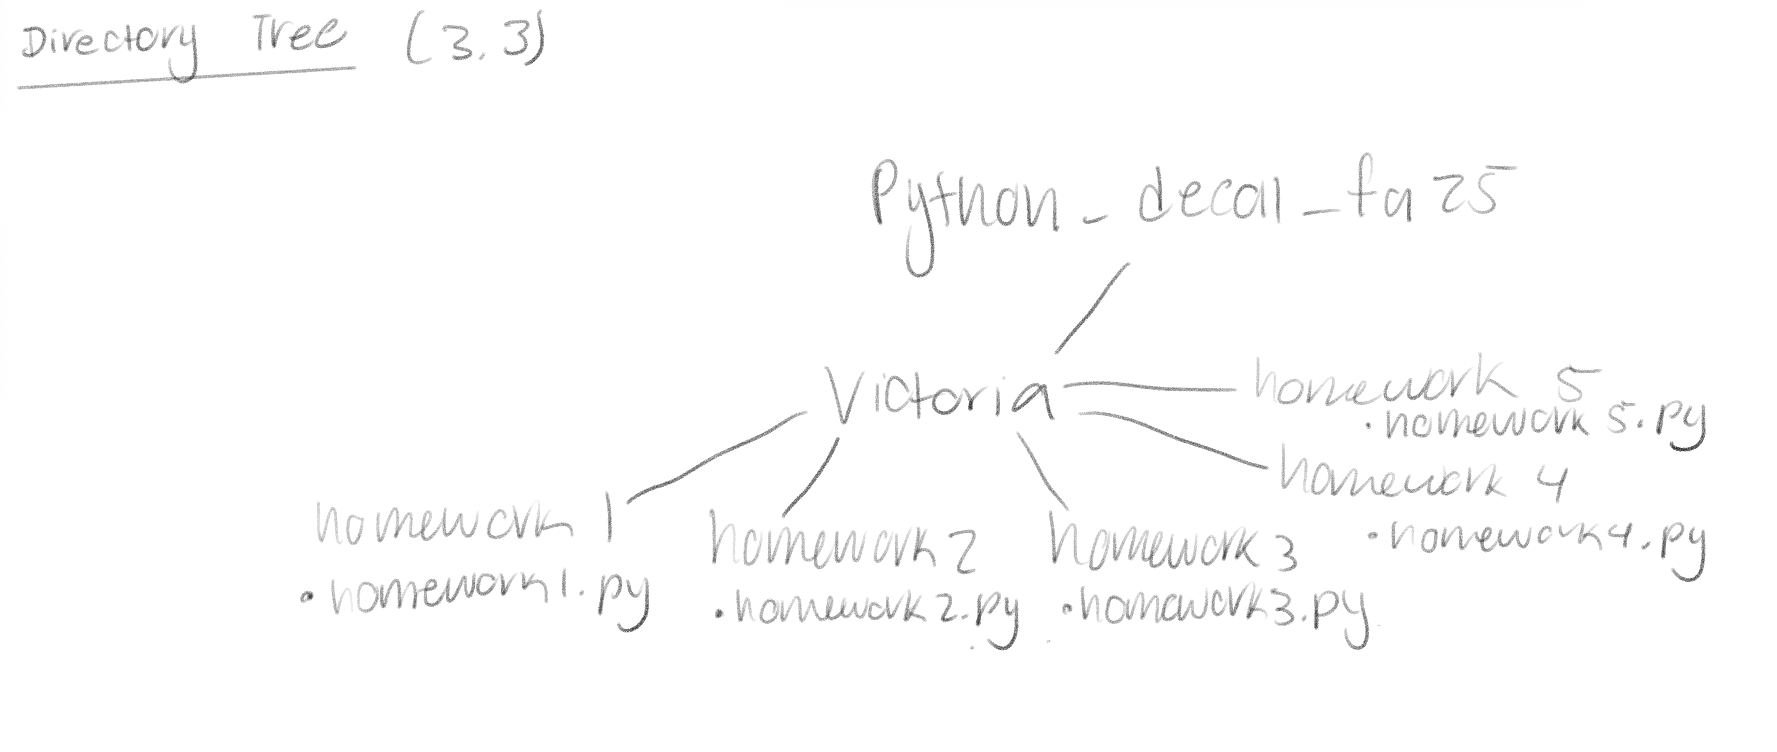 Directory Tree (3.3)
Python_decal_fa25
Victoria
homework 1
• homework1.py
homework 2
• homework2.py
homework 3
• homework3.py
homework 4
• homework4.py
homework 5
• homework5.py